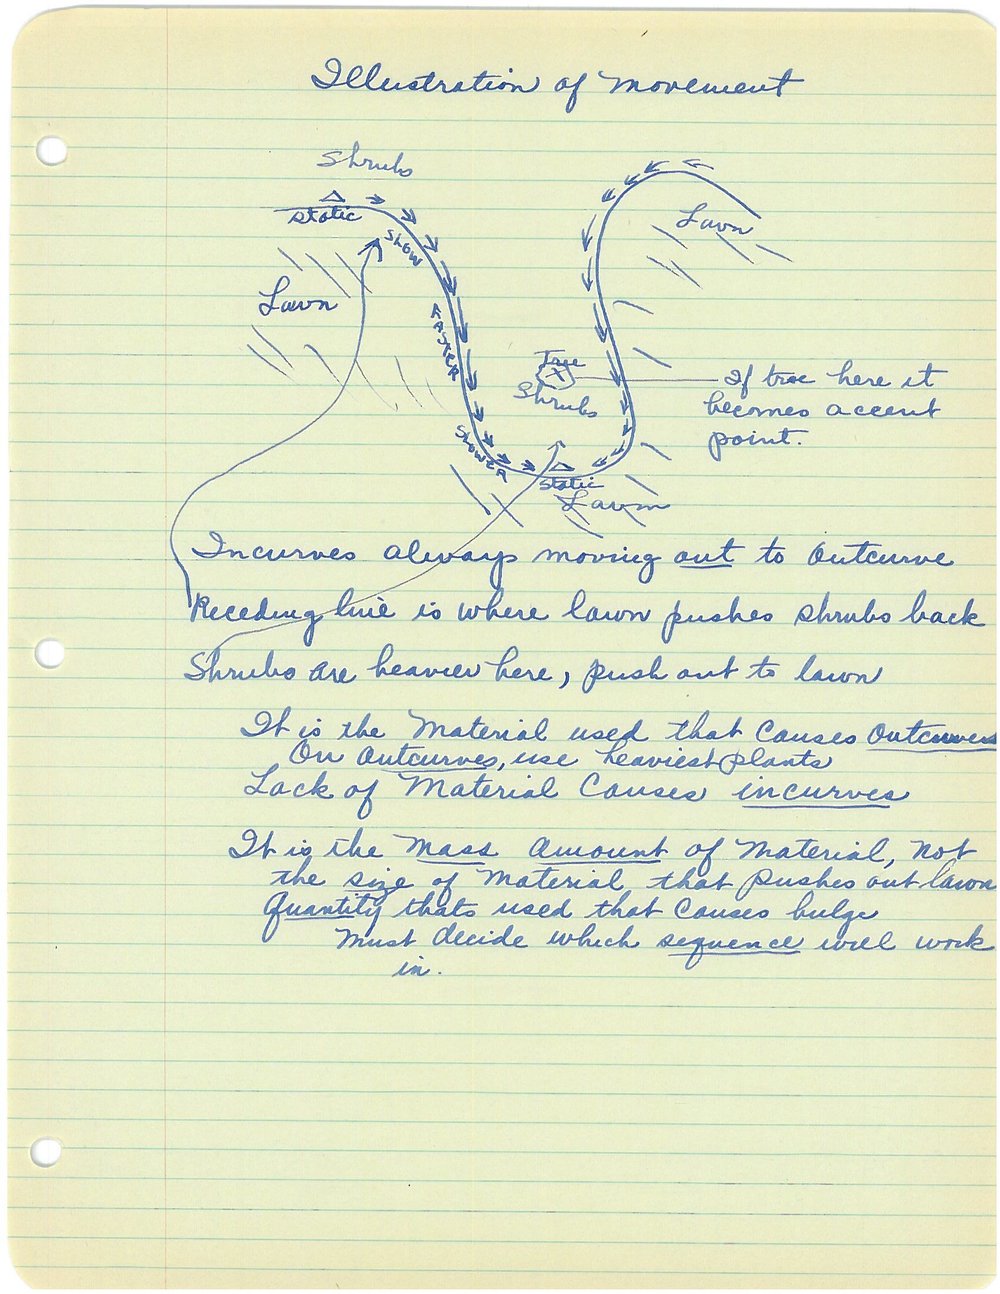 Illustration of Movement
Shrubs
Static
Slow
Lawn
Faster
Slower
Lawn
Tree
Shrubs
If tree here it
becomes accent
point.
Static
Lawn
Incurves always moving out to outcurve
Receding line is where lawn pushes shrubs back
Shrubs are heavier here, push out to lawn
It is the Material used that Causes Outcurves
On Outcurves, use heaviest plants
Lack of Material Causes incurves
It is the Mass Amount of Material, not
the size of Material that pushes out lawn
Quantity thats used that Causes bulge
Must decide which sequence will work
in.